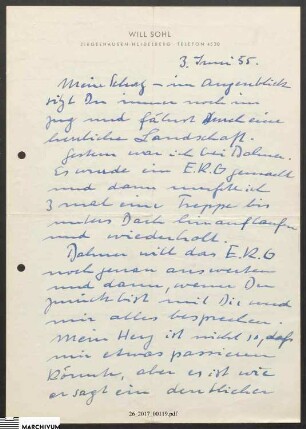 WILL SOHL
ZIEGELHAUSEN HEIDELBERG · TELEFON 4720
3. Juni 55.
Meine Schatz – im Augenblick
sitzt Du immer noch im
Zug und fährst durch eine
herrliche Landschaft.
Gestern war ich bei Dahmer.
Es wurde ein E.K.G gemacht
und dann musste ich
3 mal eine Treppe bis
unters Dach hinauflaufen
und wiederholt.
Dahmer will das E.K.G
noch genau auswerten
und dann, wenn Du
zurück bist mit Dir und
mir alles besprechen.
Mein Herz ist nicht so, daß
mir etwas passieren
könnte, aber es ist wie
er sagt ein deutlicher
MARCHIVUM
26_2017_00119.pdf